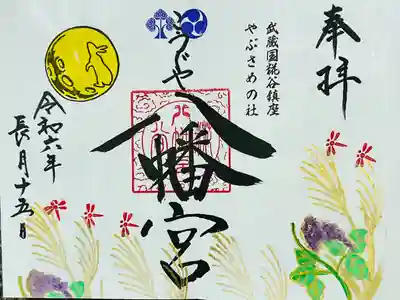 奉拝
武蔵國糀谷鎮座
やぶさめの社
こうじや
八幡宮
令和六年
長月十五日